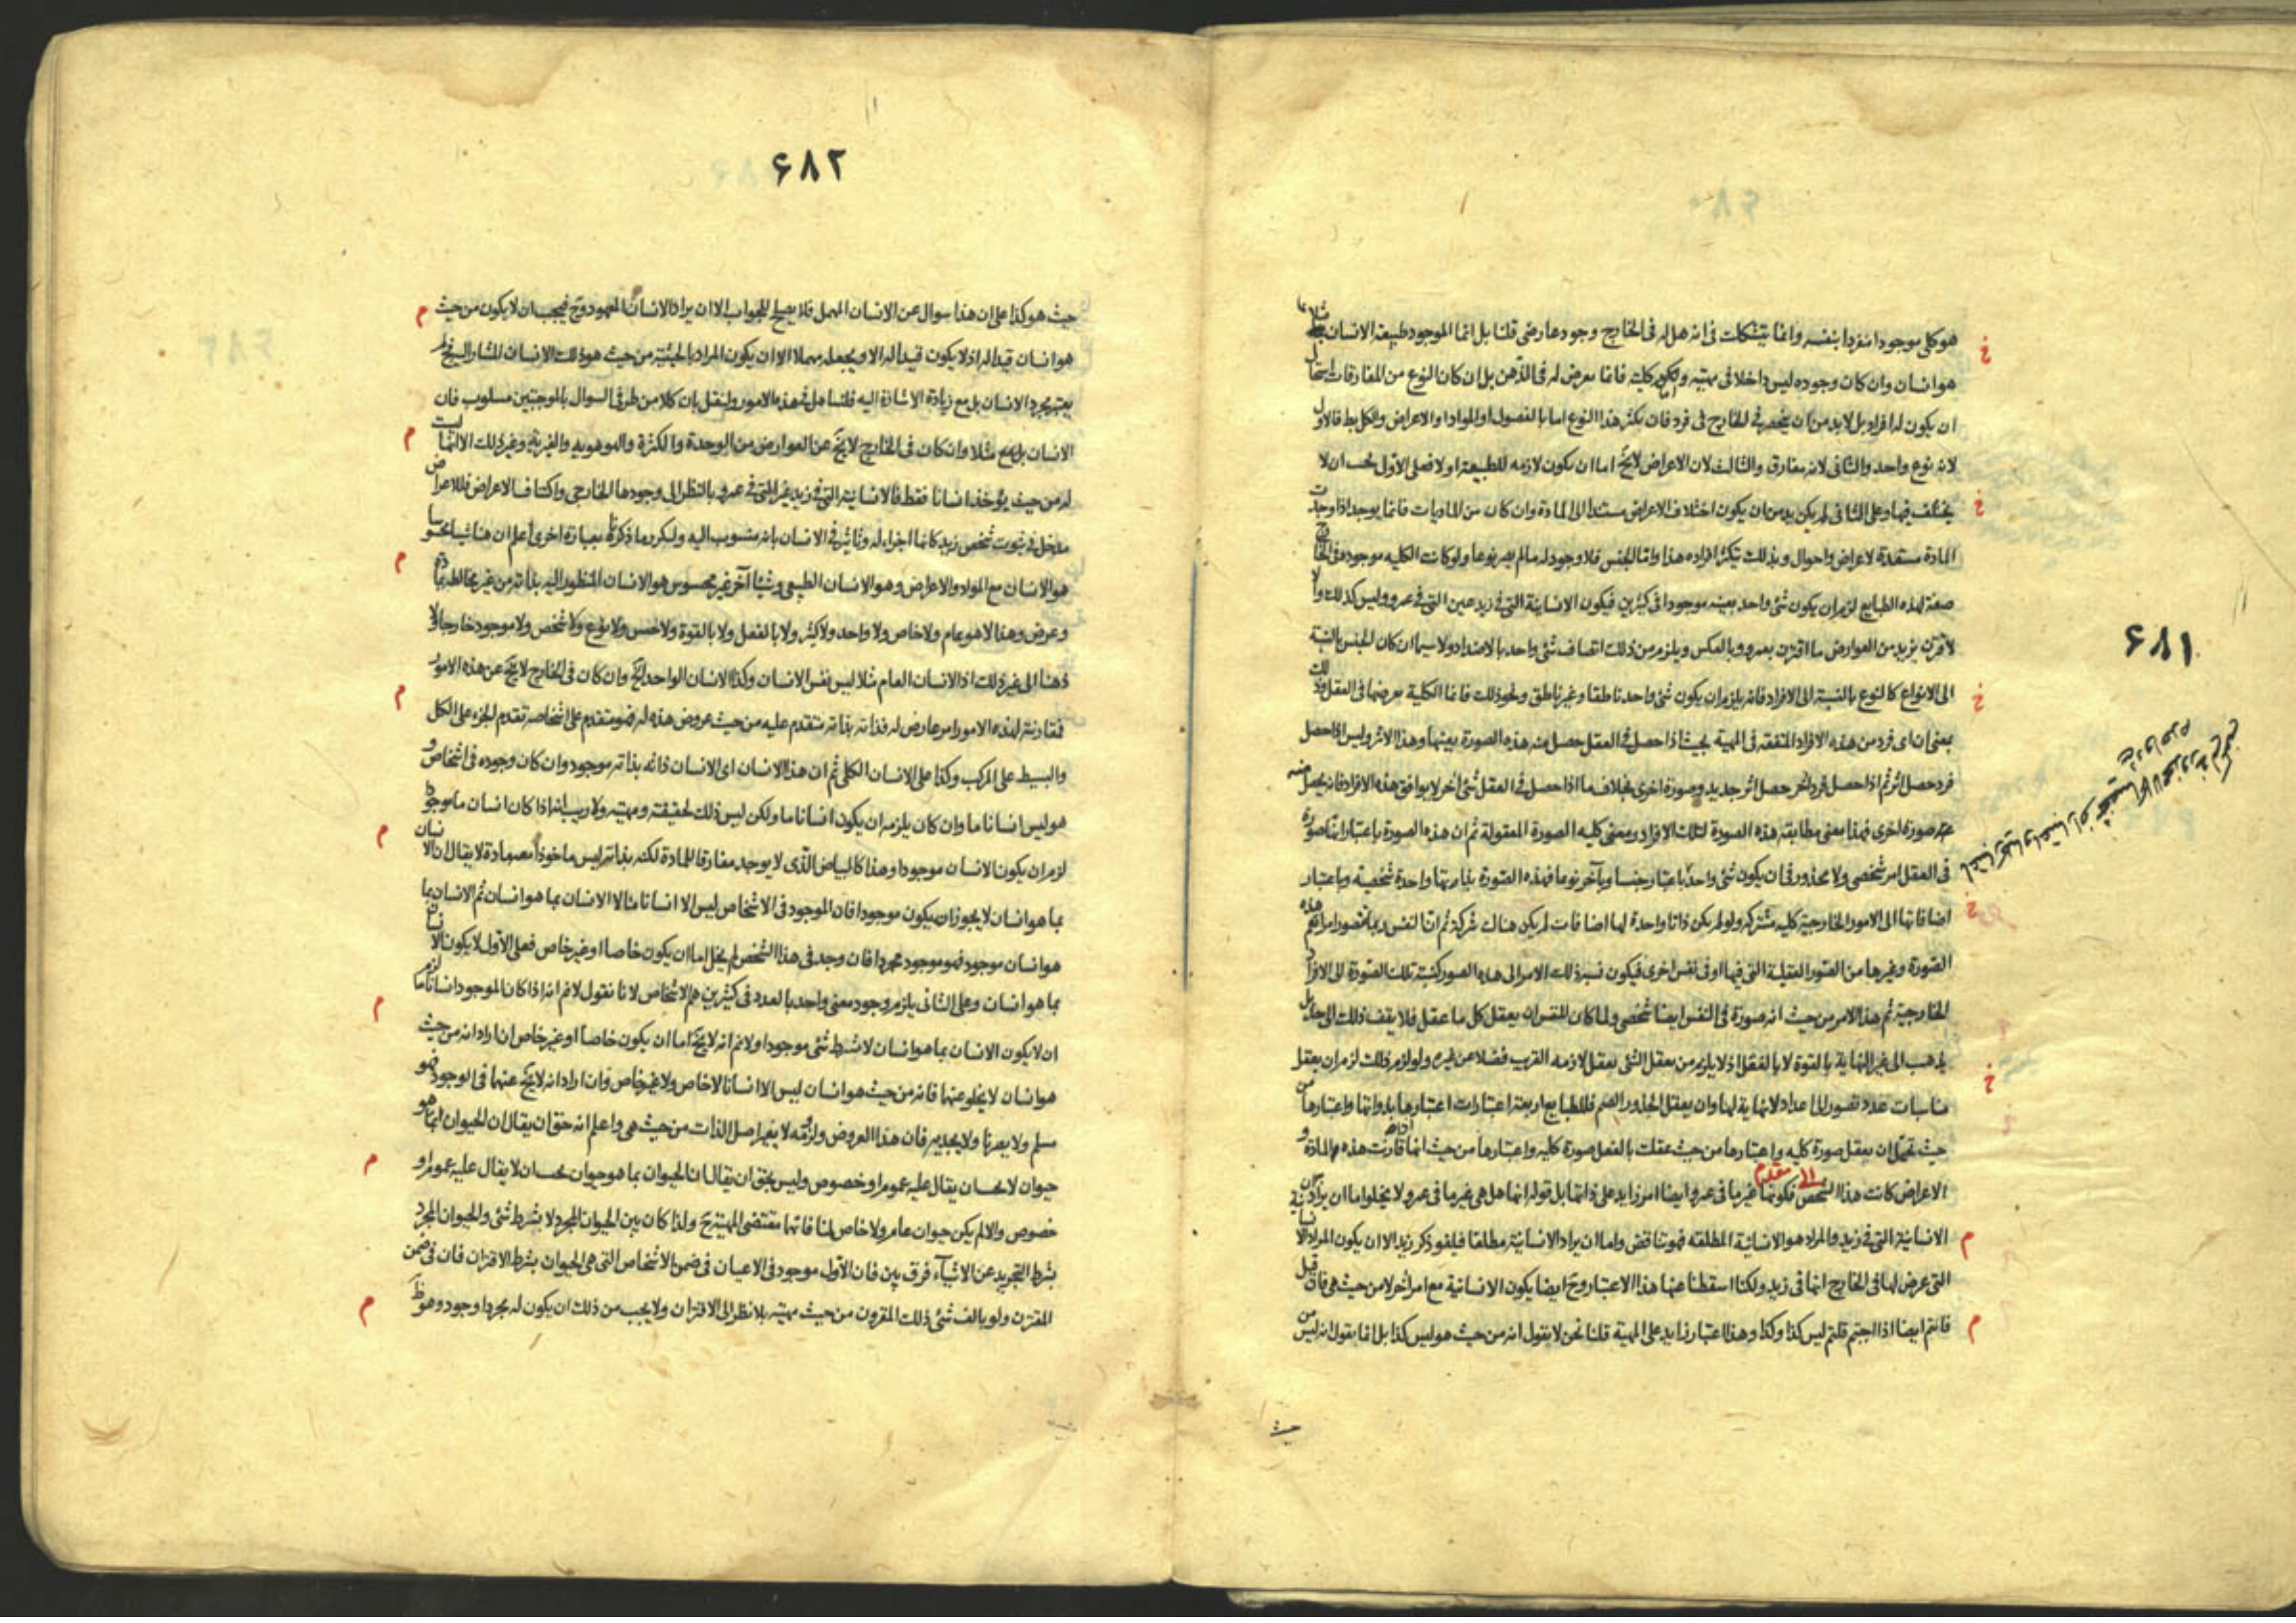 ۶۸۱
هو كلي موجودا منفردا بنفسه وانما يتشكك في انه هل له في الخارج وجود عارضي قلنا بل انما الموجود طبيعة الانسان
هو انسان وان كان وجوده ليس داخلا في مهيته كليته فانما يعرض له في الذهن بل ان كان النوع من المفارقات استحال
ان يكون له افراد بل لا بد من ان ينحصر في الخارج في فرد فان تكثر هذا النوع اما بالفصول او المواد او الاعراض والكل بط فالاول
لانه نوع واحد والثاني لانه مفارق والثالث لان الاعراض لا يخ اما ان يكون لازمه للطبيعة او لا فعلى الاول يجب ان لا
يختلف فيها وعلى الثاني لم يكن بد من ان يكون اختلاف الاعراض مستندا الى المادة وان كان من الماديات فانما يوجد اذا وجدت
المادة مستعدة لاعراض واحوال وبذلك تتكثر افراده هذا واما الجنس فلا وجود له ما لم يصر نوعا ولو كانت الكليه موجوده في الخارج
صفة لهذه الطبايع لزم ان يكون شئ واحد بعينه موجودا في كثيرين فيكون الانسانية التي في زيد عين التي في عمرو وليس كذلك والا
لاقترن بزيد من العوارض ما اقترن بعمرو وبالعكس ويلزم من ذلك اتصاف شئ واحد بالاضداد ولا سيما ان كان الجنس بالنسبة
الى الانواع كالنوع بالنسبة الى الافراد فانه يلزم ان يكون شئ واحد ناطقا وغير ناطق ونحو ذلك فانما الكلية يعرضها في العقل وذلك
بمعنى ان اي فرد من هذه الافراد المتفقه في المهية بحيث اذا حصل في العقل حصل منه هذه الصورة بعينها وهذا الاثر وليس اذا حصل
فرد حصل اثر ثم اذا حصل فرد آخر حصل اثر جديد وصورة اخرى بخلاف ما اذا حصل في العقل شئ آخر لا يوافق هذه الافراد فانه يحصل منه
صورة اخرى فهذا معنى مطابقة هذه الصورة لتلك الافراد ومعنى كليه الصورة المعقولة ثم ان هذه الصورة باعتبار انها صورة
في العقل امر شخصي ولا محذور في ان يكون شئ واحد باعتبار جنسا وبآخر نوعا فهذه الصورة بذاتها واحدة شخصية وباعتبار
اضافاتها الى الامور الخارجية كليه مشتركه ولو لم يكن ذاتا واحدة لها اضافات لم يكن هناك شركة ثم ان النفس ربما تصور امرا يعم هذه
الصورة وغيرها من الصور العقلية التي فيها او في نفس اخرى فيكون نسبة ذلك الامر الى هذه الصور كنسبة تلك الصورة الى الافراد
الخارجية ثم هذا الامر من حيث انه صورة في النفس ايضا شخصي ولما كان للنفس ان يعقل كل ما عقل فلا يقف ذلك الى حد بل
يذهب الى غير النهاية بالقوة لا بالفعل اذ لا يلزم من يعقل الشئ تعقل لازمه القريب فضلا عن غيره ولو لزم ذلك لزم ان يعقل
مناسبات عدد تصور الى اعداد لا نهاية لها وان يعقل الجذور الصم فللطبايع اربعة اعتبارات اعتبارها بذواتها واعتبارها من
حيث تحتمل ان يعقل صورة كليه واعتبارها من حيث عقلت بالفعل صورة كليه واعتبارها من حيث انها قارنت هذه المادة و
الاعراض كانت هذا الشخص فكونها غيرها في عمرو ايضا امر زايد على ذاتها بل قوله انها هل هي غيرها في عمرو ولا يخلو اما ان يراد
الانسانية التي في زيد والمراد هو الانسانية المطلقه فهو تناقض واما ان يراد الانسانية مطلقا فيلغو ذكر زيد الا ان يكون المراد
التي عرض لها في الخارج انها في زيد ولكنا اسقطنا عنها هذا الاعتبار وح ايضا يكون الانسانية مع امر آخر لا من حيث هي فان قيل
فانتم ايضا اذا اجبتم قلتم ليس كذا وكذا وهذا اعتبار زايد على المهية قلنا نحن لا نقول انه من حيث هو ليس كذا بل انما نقول انه ليس من
حيث
۶۸۲
حيث هو كذا على ان هذا سوال عن الانسان المهمل فلا يصلح للجواب الا ان يراد الانسان المعهود وح فيجب ان لا يكون من حيث
هو انسان قيدا له اذ لا يكون قيدا له الا ويجعله مهملا الا ان يكون المراد بالحيثية من حيث هو ذلك الانسان المشار اليه
يعتبر مجرد الانسان بل مع زيادة الاشارة اليه فلنساهل في هذه الامور ولنقل بان كلا من طرفي السوال بالموجبتين مسلوب فان
الانسان مثلا وان كان في الخارج لا يخ عن العوارض من الوحدة والكثرة والهوهويه والغيرية وغير ذلك الا انها ليست
له من حيث يؤخذ انسانا فقط فالانسانية التي في زيد غير التي في عمرو بالنظر الى وجودها الخارجي واكتناف الاعراض فللاعراض
مدخل في ثبوت شخص زيد كانها اجزاء له وتاثير في الانسان بانه منسوب اليه ولنكرر ما ذكرناه بعبارة اخرى اعلم ان هنا شيئا محسوسا
هو الانسان مع المواد والاعراض وهو الانسان الطبيعي وشيئا آخر غير محسوس هو الانسان المنظور اليه بذاته من غير مخالطة بمادة
وعرض وهذا لا هو عام ولا خاص ولا واحد ولا كثير ولا بالفعل ولا بالقوة ولا جنس ولا نوع ولا شخص ولا موجود خارجا ولا
ذهنا الى غير ذلك اذ الانسان العام مثلا ليس نفس الانسان وكذا الانسان الواحد الخ وان كان في الخارج لا يخ عن هذه الامور
فمقارنة لهذه الامور امر عارض له فذاته بذاته متقدم عليه من حيث عروض هذه له فهو متقدم على اشخاصه تقدم الجزء على الكل
والبسيط على المركب وكذا على الانسان الكلي ثم ان هذا الانسان اي الانسان ذاته بذاته موجود وان كان وجوده في اشخاص و
هو ليس انسانا ما وان كان يلزمه ان يكون انسانا ما ولكن ليس ذلك لحقيقته ومهيته ولا ريب انه اذا كان انسان ما موجودا
لزم ان يكون الانسان موجودا وهذا كالبياض الذي لا يوجد مفارقا للمادة لكنه بذاته ليس ماخوذا معه مادة لا يقال ان الانسان
بما هو انسان لا يجوز ان يكون موجودا فان الموجود في الاشخاص ليس الا انسانا ما لا الانسان بما هو انسان ثم الانسان بما
هو انسان موجود فهو موجود مجردا فان وجد في هذا الشخص لم يخل اما ان يكون خاصا او غير خاص فعلى الاول لا يكون الانسان
بما هو انسان وعلى الثاني يلزم وجود معنى واحد بالعدد في كثيرين هم الاشخاص لانا نقول لا نم انه اذا كان الموجود انسانا ما لزم
ان لا يكون الانسان بما هو انسان لا شرط شئ موجودا ولا نم انه لا يخ اما ان يكون خاصا او غير خاص ان اراد انه من حيث
هو انسان لا يخلو عنهما فانه من حيث هو انسان ليس الا انسانا لا خاص ولا غير خاص وان اراد انه لا يخ عنهما في الوجود فهو
مسلم ولا يضرنا ولا يجديه فان هذا العروض ولزومه لا يغير اصل الذات من حيث هي واعلم انه حق ان يقال ان الحيوان بما هو
حيوان لا يحسان يقال عليه عموم او خصوص وليس بحق ان يقال ان الحيوان بما هو حيوان يحسان لا يقال عليه عموم او
خصوص والا لم يكن حيوان عام ولا خاص لمنافاتهما مقتضى المهية ح ولذا كان بين الحيوان المجرد لا بشرط شئ والحيوان المجرد
بشرط التجريد عن الاشياء فرق بين فان الاول موجود في الاعيان في ضمن الاشخاص التي هي الحيوان بشرط الاقتران فان في ضمن
المقترن ولو بالف شئ ذلك المقرون من حيث مهيته بلا نظر الى الاقتران ولا يجب من ذلك ان يكون له مجردا وجود وهو